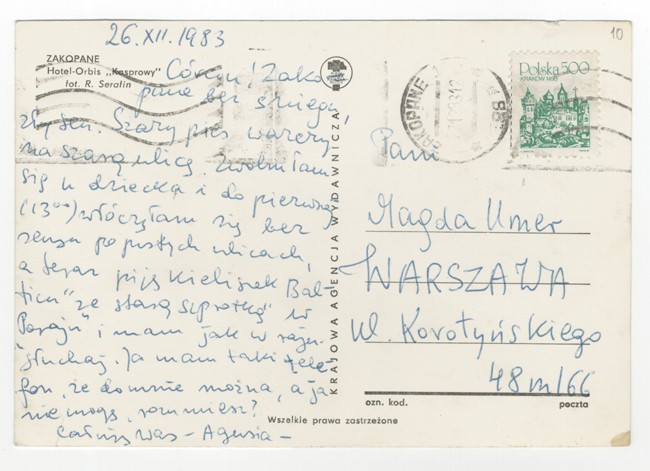 26.XII.1983
ZAKOPANE
Hotel-Orbis „Kasprowy"
fot. R. Serafin
Córciu! Zako
pane bez śniegu,
zły sen. Szary pies warczy
na szarą ulicę. Zwolniłam
się u dziecka i do pierwszej
(13⁰⁰) włóczyłam się bez
sensu po pustych ulicach,
a teraz piję kieliszek „Bal-
ticu" ze starą szprotką w
„Poraju" i mam jak w
słuchaj. Ja mam taki tele
fon, że do mnie można, a ja
nie mogę, rozumiesz?
Całuję Was – Agusia –
KRAJOWA AGENCJA WYDAWNICZA
10
Polska 500
KRAKÓW 1493
ZAKOPANE
Pani
Magda Umer
WARSZAWA
ul. Korotyńskiego
48 m/66
ozn. kod. poczta
Wszelkie prawa zastrzeżone